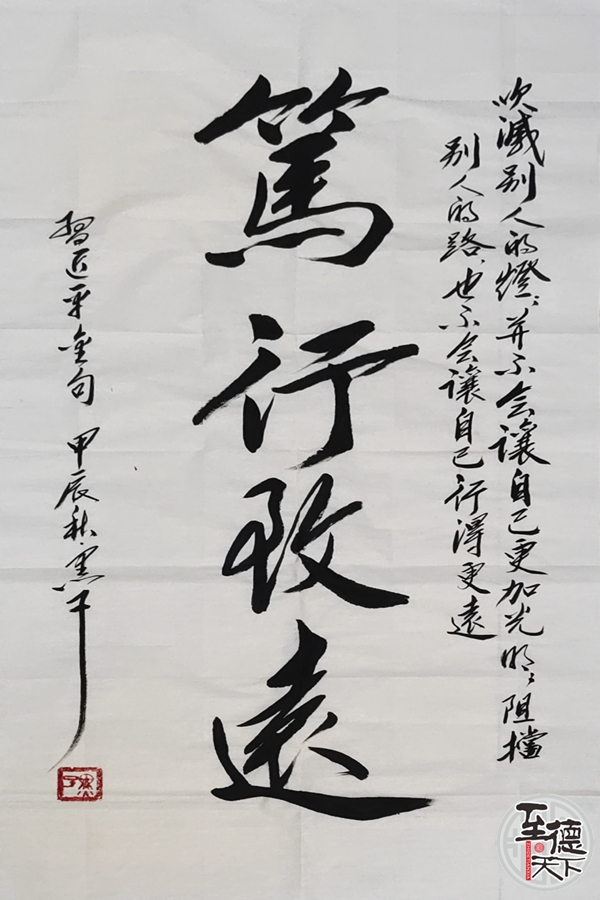 吹滅别人的燈；并不会讓自己更加光明；阻擋
别人的路，也不会讓自己行得更遠
篤行致遠
習近平金句 甲辰秋 黑子
至德天下